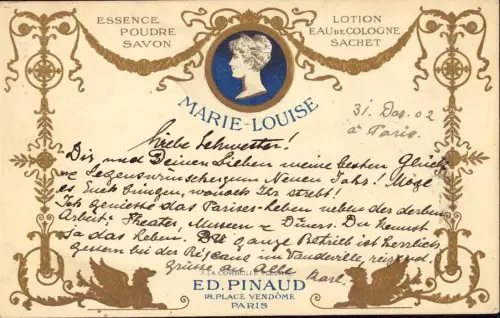 ESSENCE
POUDRE
SAVON
LOTION
EAU DE COLOGNE
SACHET
MARIE-LOUISE
31. Dez. 02
à Paris.
Liebe Schwester!
Dir und Deinen Lieben meine besten Glück-
& Segenswünsche zum Neuen Jahr! Möge
es Euch bringen, wonach Ihr strebt!
Ich genieße das Pariser-Leben neben der derben
Arbeit; Theater, Museen & Diners. Du kennst
ja das Leben. Der ganze Betrieb ist herrlich
gestern bei der Réjeane im Vaudeville, reizend.
alle Karl.
A LA CORBEILLE FLEURIE
ED. PINAUD
18. PLACE VENDÔME
PARIS